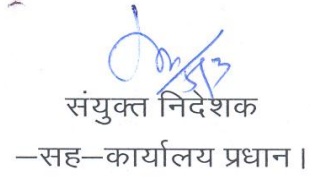 संयुक्त निदेशक
–सह–कार्यालय प्रधान।